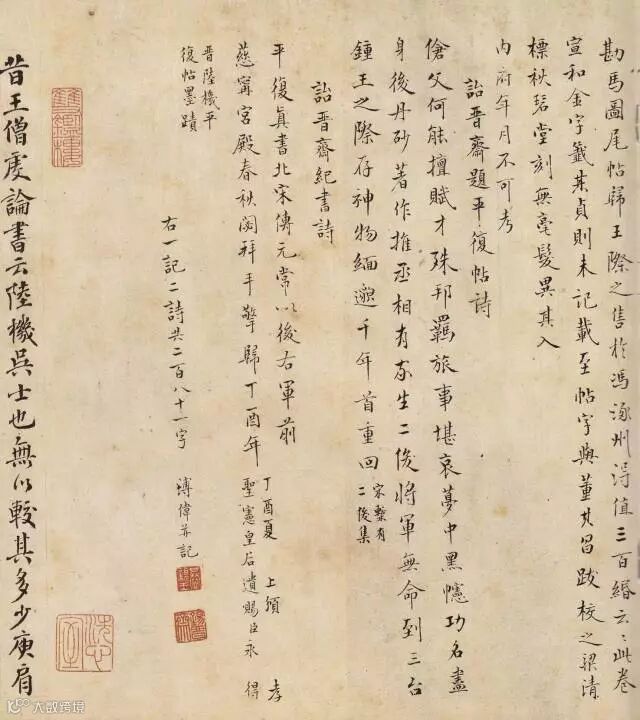 勘馬圖尾帖歸王際之售於馮涿州得值三百緡云云此卷
宣和金字籤其貞則未記載至帖字與董其昌跋校之梁清
標秋碧堂刻無毫髮異其入
內府年月不可考
詒晉齋題平復帖詩
傖父何能擅賦才殊邦羈旅事堪哀夢中黑幰功名盡
身後丹砂著作推丞相有家生二俊將軍無命到三台
鍾王之際存神物緬邈千年首重回宋槧有二俊集
詒晉齋紀書詩
平復真書北宋傳元常以後右軍前
慈寧宮殿春秋閟拜手擎歸丁酉年丁酉夏 上頒 孝聖憲皇后遺賜臣永 得
晉陸機平復帖墨蹟
右一記二詩共二百八十一字 溥偉並記
昔王僧虔論書云陸機吳士也無以較其多少庾肩
大數跨境